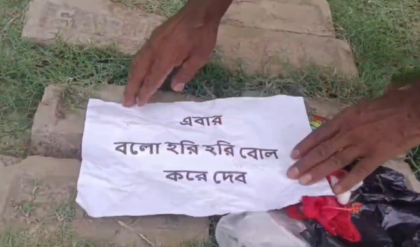 এবার
বলো হরি হরি বোল
করে দেব